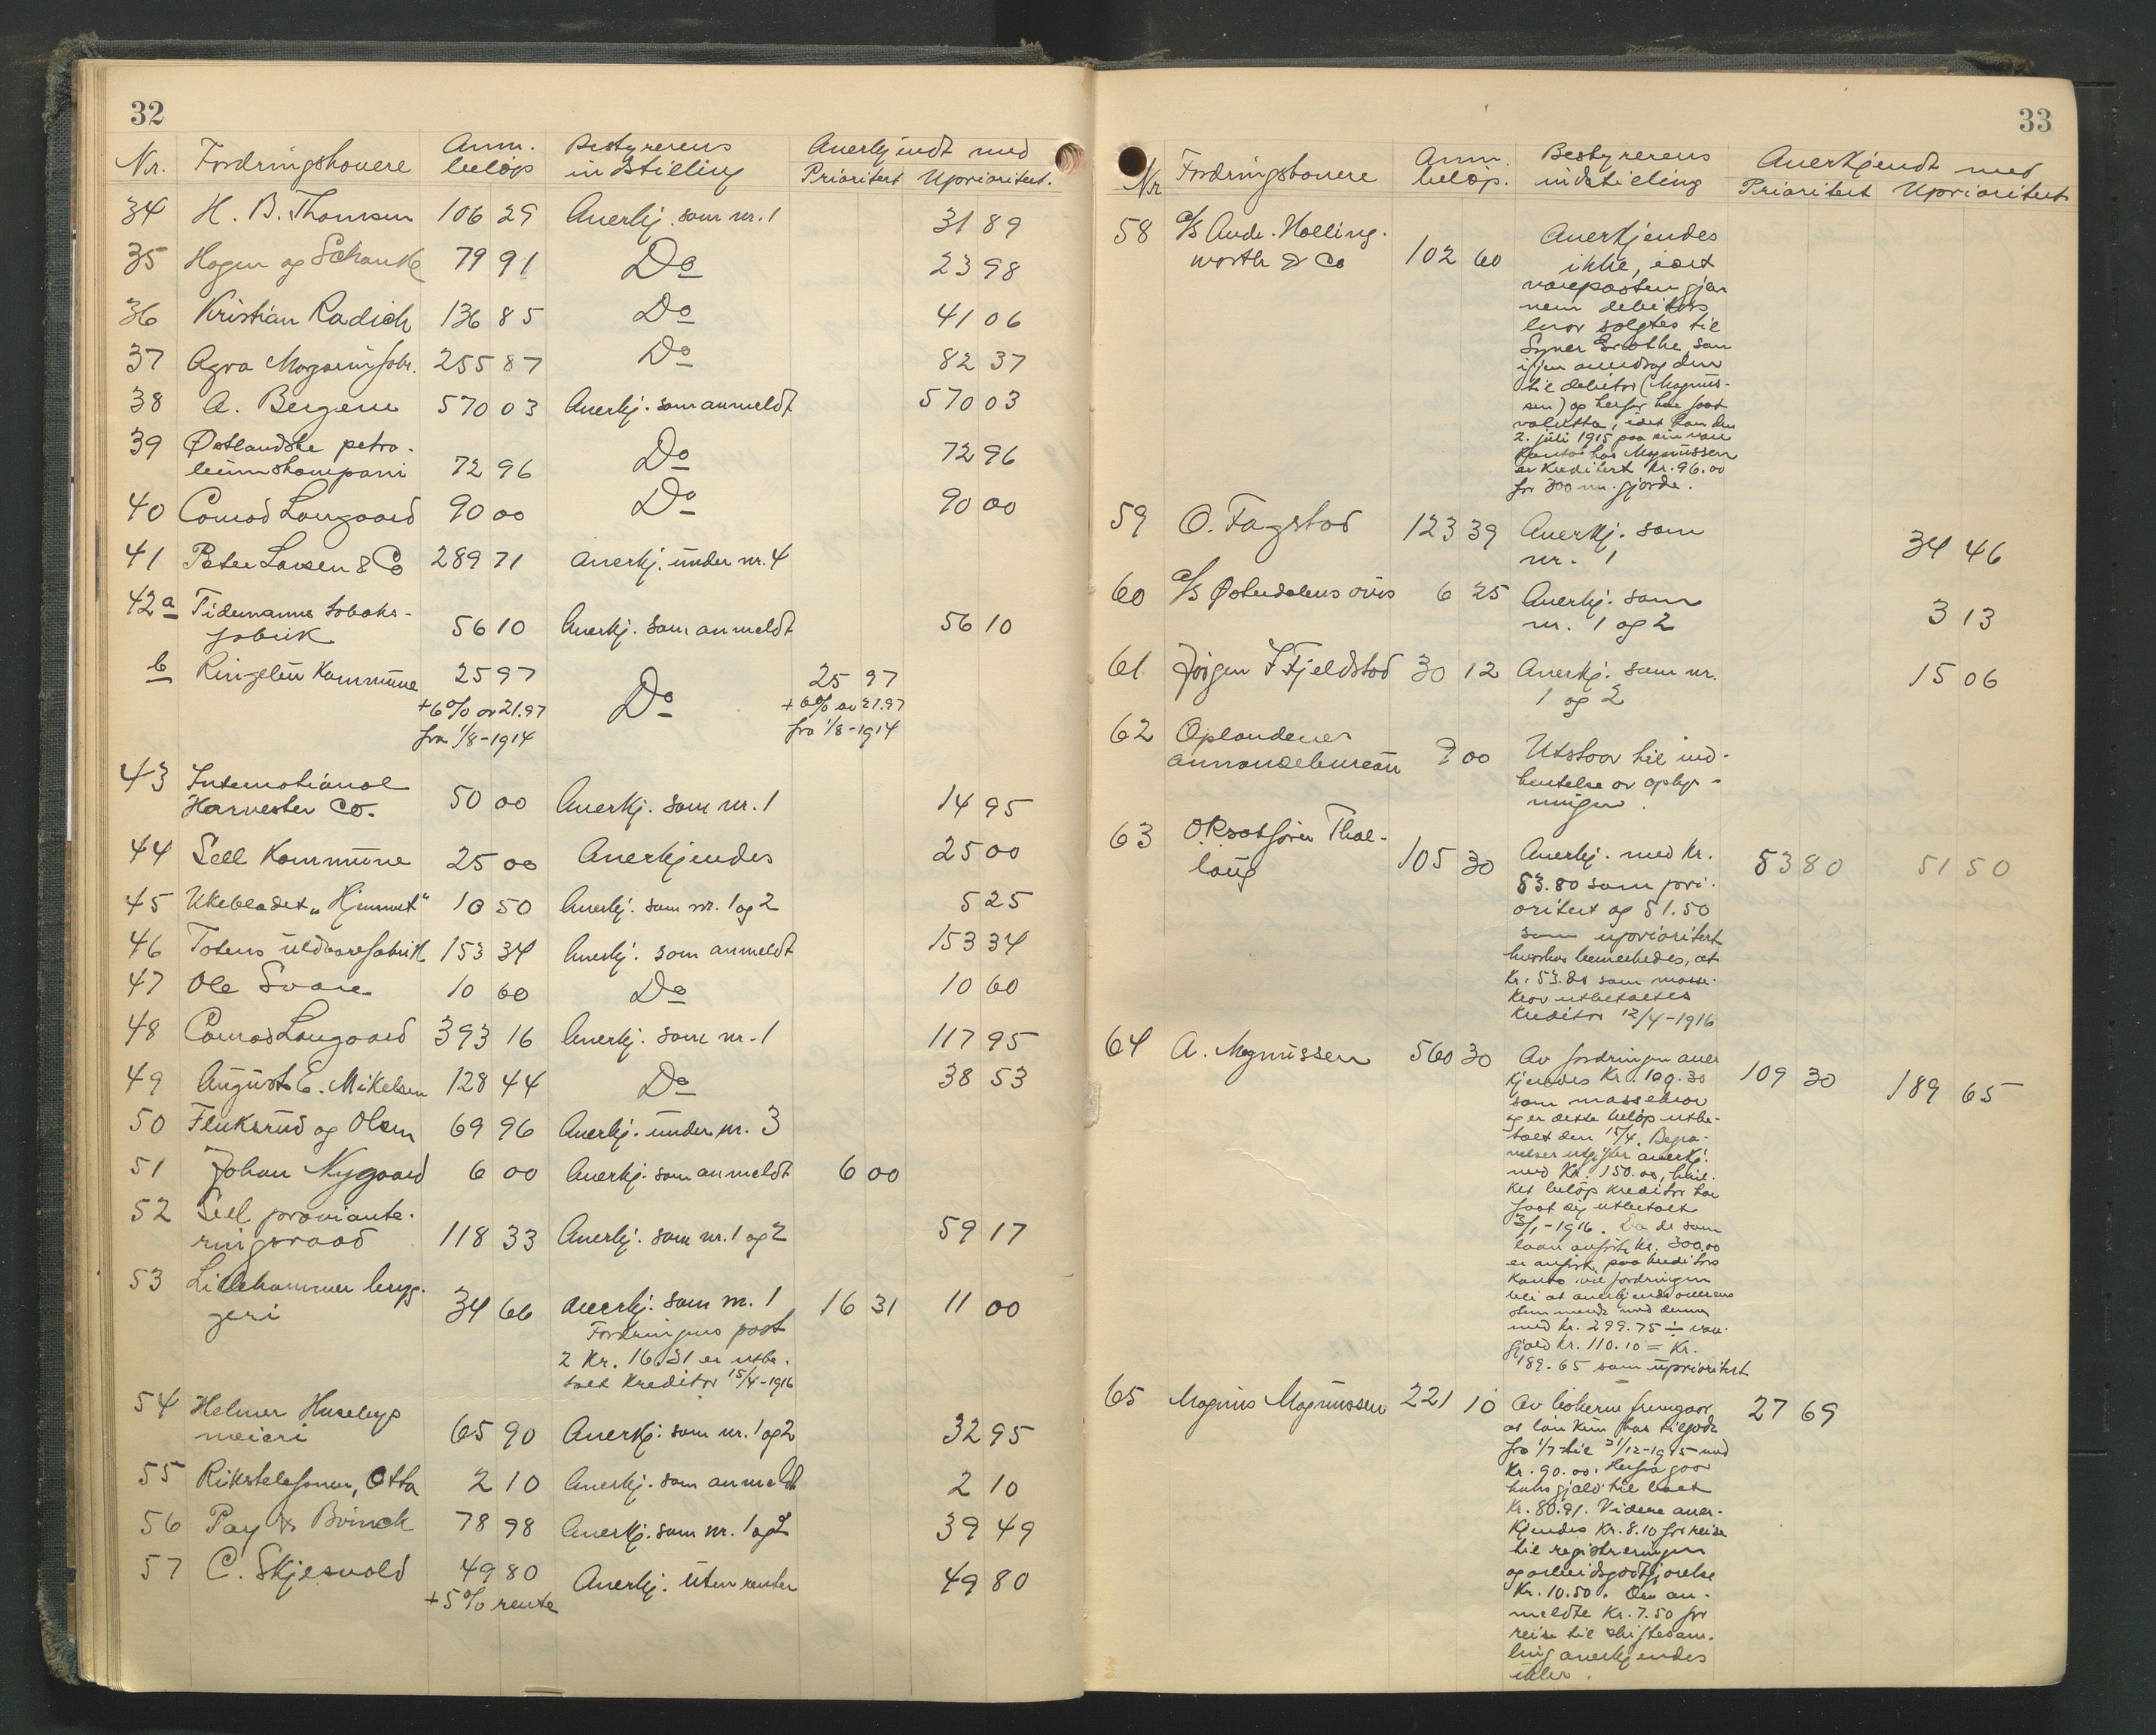 32
Nr. Fordringshavere Anm. beløp Bestyrerens indstilling Anerkjendt med Prioritert Uprioritert.
34 H. B. Thomsen 106 29 Anerkj. som nr. 1 31 89
35 Hagen og Schanke 79 91 Do 23 98
36 Kristian Radich 136 85 Do 41 06
37 Agra Margarinfabr. 255 87 Do 82 37
38 A. Bergene 570 03 Anerkj. som anmeldt 570 03
39 Østlandske petro-
leumskompani 72 96 Do 72 96
40 Conrad Langaard 90 00 Do 90 00
41 Peter Larsen & Co 289 71 Anerkj. under nr. 4
42a Tidemanns tobaks-
fabrik 56 10 Anerkj. som anmeldt 56 10
b Ringebu Kommune 25 97 Do 25 97
+6% av 21.97 +6% av 21.97
fra 1/8-1914 fra 1/8-1914
43 International
Harvester Co. 50 00 Anerkj. som nr. 1 14 95
44 Sell Kommune 25 00 Anerkjendes 25 00
45 Ukebladet „Hjemmet" 10 50 Anerkj. som nr. 1 og 2 5 25
46 Totens uldvarefabrik 153 34 Anerkj. som anmeldt 153 34
47 Ole Svare 10 60 Do 10 60
48 Conrad Langaard 393 16 Anerkj. som nr. 1 117 95
49 August E. Mikelsen 128 44 Do 38 53
50 Fluksrud og Olsen 69 96 Anerkj. under nr. 3
51 Johan Nygaard 6 00 Anerkj. som anmeldt 6 00
52 Sell proviante-
ringsraad 118 33 Anerkj. som nr. 1 og 2 59 17
53 Lillehammer bryg-
geri 34 66 Anerkj. som nr. 1 16 31 11 00
Fordringens post
2 Kr. 16.31 er utbe-
talt Kreditor 15/4-1916
54 Helmer Husebys
meieri 65 90 Anerkj. som nr. 1 og 2 32 95
55 Rikstelefonen, Otta 2 10 Anerkj. som anmeldt 2 10
56 Pay & Brinck 78 98 Anerkj. som nr. 1 og 2 39 49
57 C. Skjesvold 49 80 Anerkj. uten renter 49 80
+5% rente
33
Nr Fordringshavere Anm. beløp. Bestyrerens indstilling Anerkjendt med Prioritert Uprioritert
58 A/S Andr. Holling-
worth & Co 102 60 Anerkjendes
ikke, idet
vareposten gjen
nem debitors
bror solgtes til
som
igjen den
til debitor (Magnus-
sen) og herfor har faat
valutta, idet han den
2. juli 1915 paa sin vare
konto hos Magnussen
er Kreditert Kr. 96.00
for 300 m. gjorde.
59 O. Fagstad 123 39 Anerkj. som
nr. 1 34 46
60 A/S Østerdalens avis 6 25 Anerkj. som
nr. 1 og 2 3 13
61 Jørgen F Fjeldstad 30 12 Anerkj. som nr.
1 og 2 15 06
62 Oplandenes
annoncebureau 9 00 Utstaar til ind-
hentelse av oplys-
ninger.
63 O.R.sakfører Thal-
laug 105 30 Anerkj. med Kr. 53 80 51 50
53.80 som pri-
oritert og 51.50
som uprioritert
hvorhos bemerkedes, at
Kr. 53.80 som masse-
krav utbetaltes
Kreditor 12/4-1916
64 A. Magnussen 560 30 Av fordringen aner 109 30 189 65
kjendes Kr. 109.30
som massekrav
og er dette beløp utbe-
talt den 15/4. Begra-
velsesutgifter anerkj.
med Kr. 150.00, hvil-
ket beløp kreditor har
faat sig utbetalt
3/1-1916. Da de som
laan anførte Kr. 300.00
er anført paa kreditors
konto vil fordringen
bli at anerkjende overens
stemmende med denne
med kr. 299.75 ÷ vare-
gjæld kr. 110.10 = Kr.
189.65 som uprioritert
65 Magnus Magnussen 221 10 Av bøkerne fremgaar 27 69
at løn kun har tilgode
fra 1/7 til 31/12-1915 med
Kr. 90.00. Herfra gaar
hans gjæld til boet
Kr. 80.91. Videre aner-
kjendes Kr. 8.10 for reise
til registreringen
og arbeidsgodtgjørelse
Kr. 10.50. Den an-
meldte Kr. 7.50 for
reise til skiftesam-
ling anerkjendes
ikke.